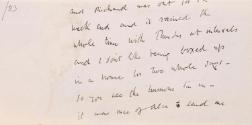 /83
and Richard was out for the
week end and it rained the
whole time with Thunder at intervals
and I don't like being boxed up
in a house for two whole days -
so you see the business I'm in -
it was nice of to send me